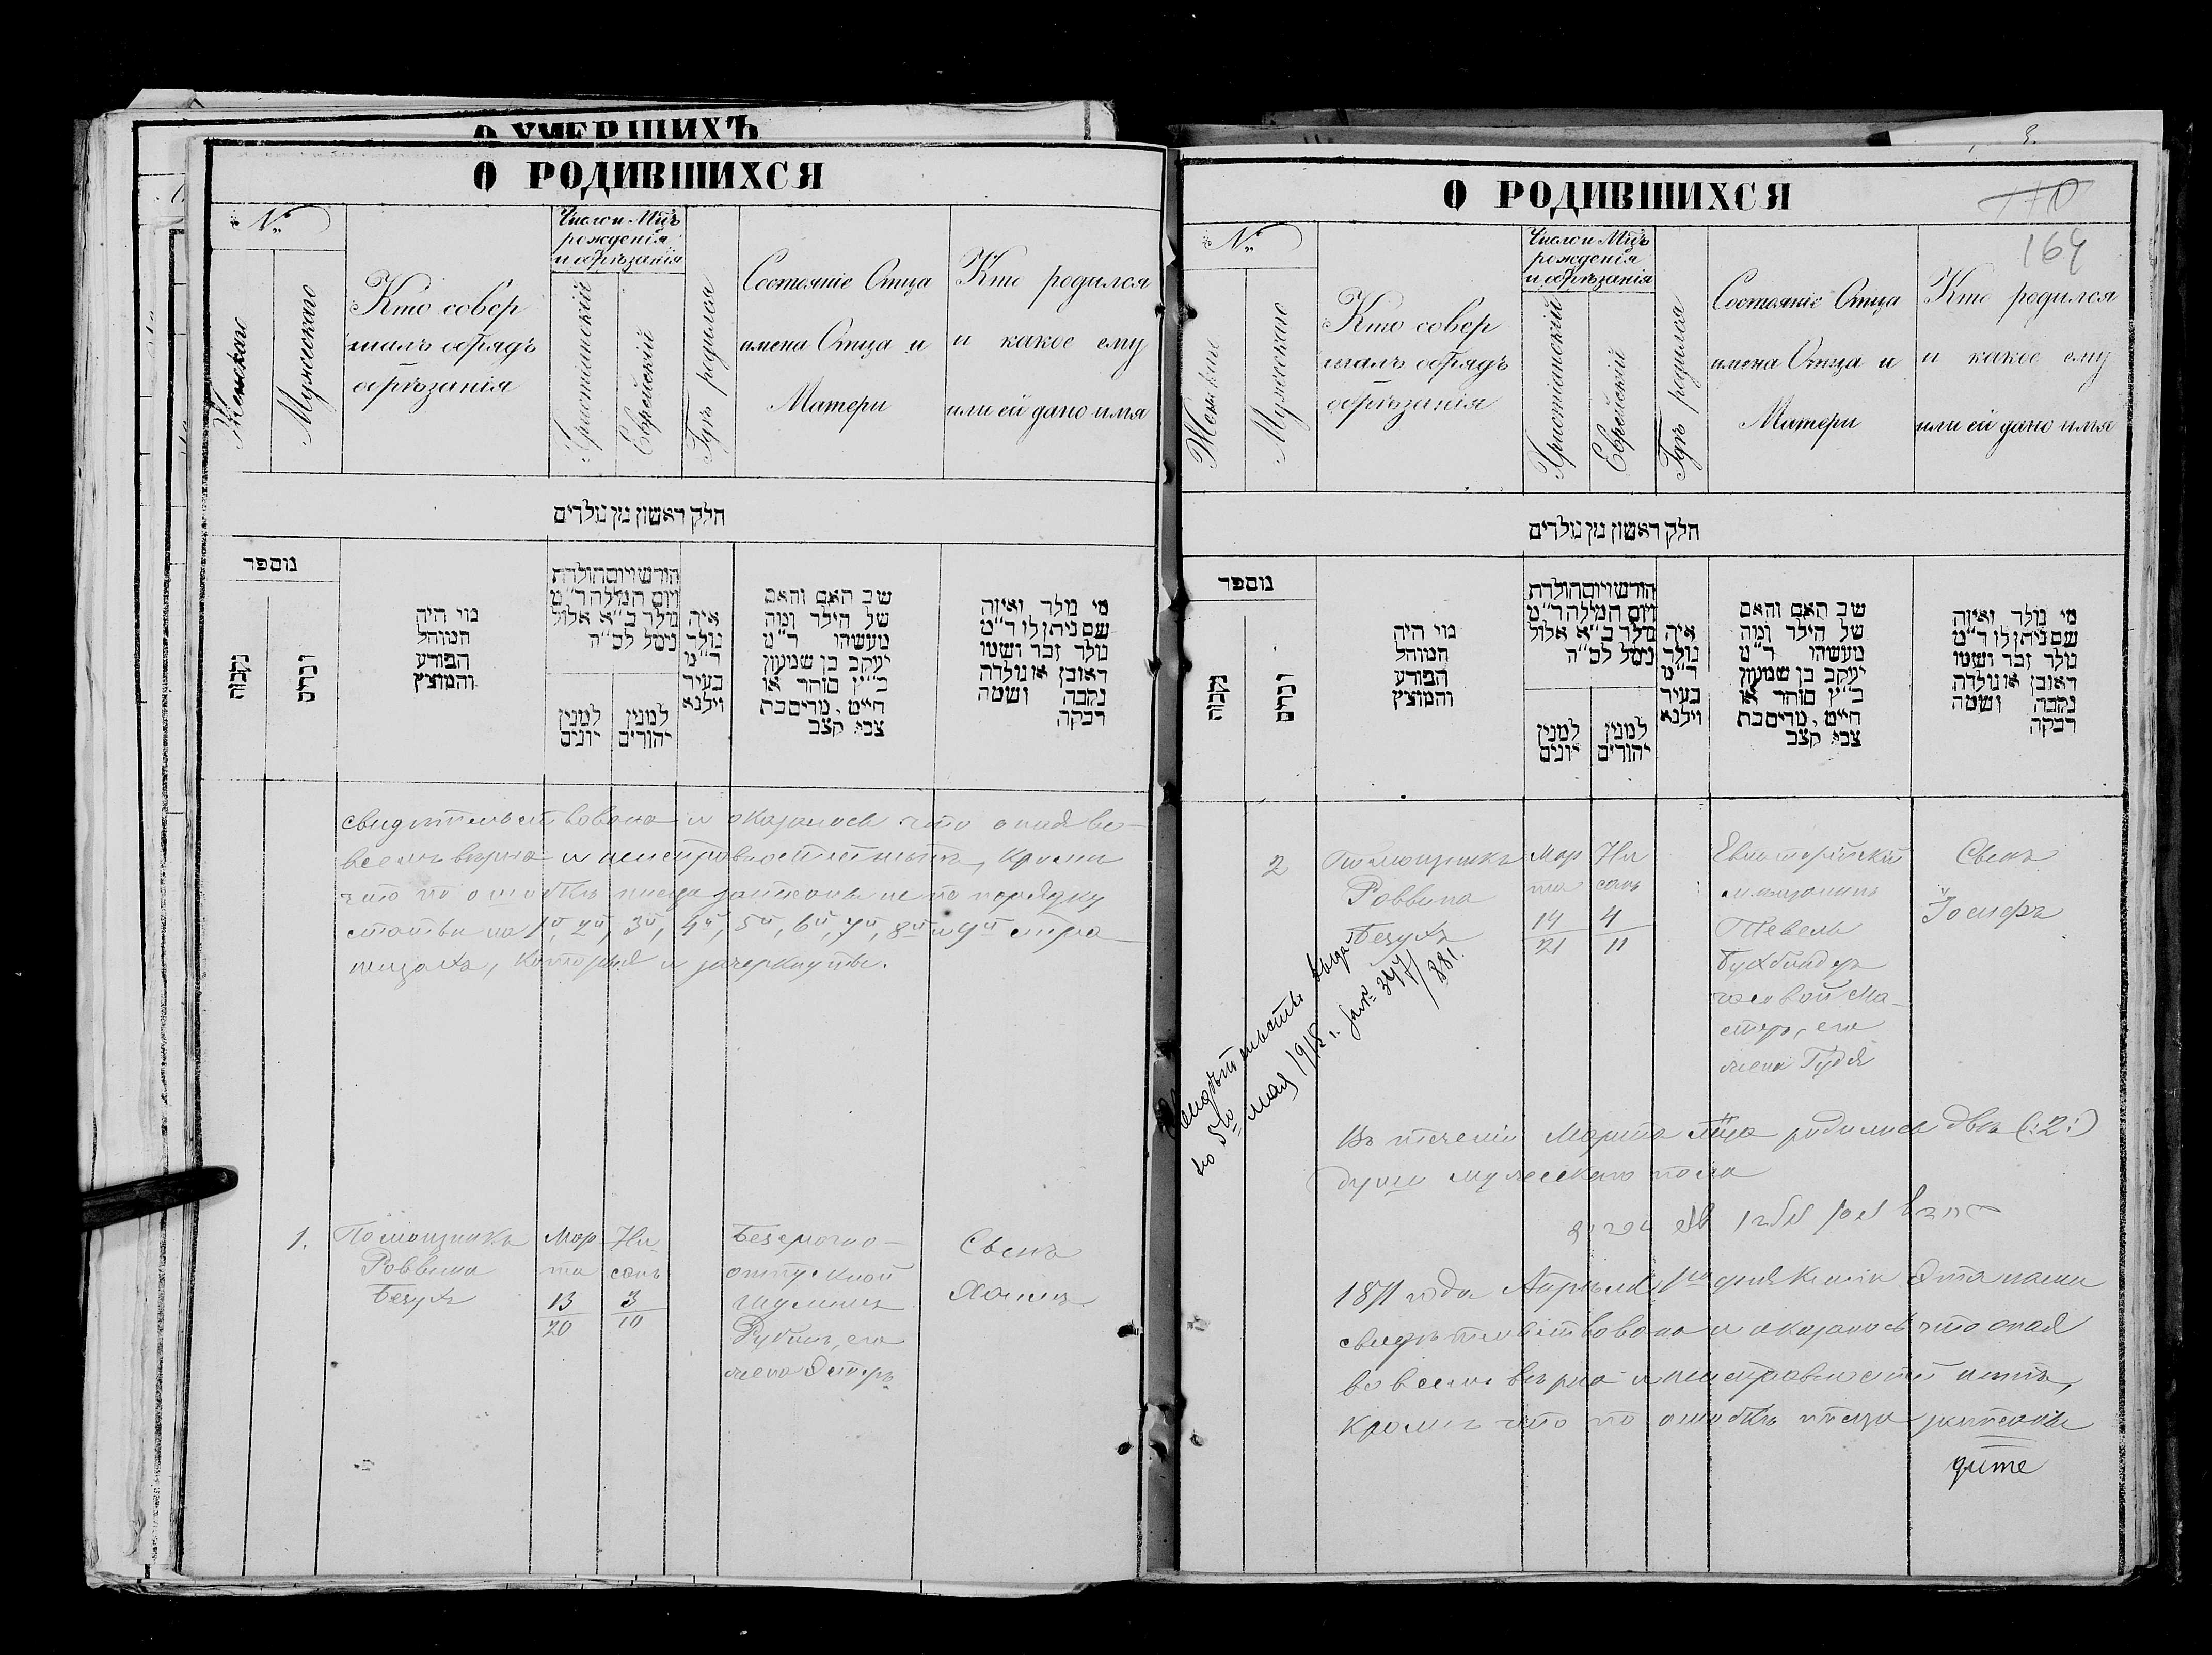 О УМЕРШИХЪ
О РОДИВШИХСЯ
№
Женскаго
Мужескаго
Кто совер
шалъ обрядъ
обрѣзанія
Число и Мцъ
рожденія
и обрѣзанія
Христіанскій
Еврейскій
Гдѣ родился
Состояніе Отца
имена Отца и
Матери
Кто родился
и какое ему
или ей дано имя
חלק ראשון מן נולדים
מספר
נקבות
זכרים
מי היה
המוהל
הפורע
והמוצץ
חודש ויום הולדת
ויום המילה ר״מ
נולד ב״א אלול
נימל לב״ה
למנין
יונים
למנין
יהודים
איה
נולד
ר״מ
בעיר
וילנא
שב האם והאם
של הילד ומה
מעשהו ר״מ
יעקב בן שמעון
כ״ץ סוחר או
חייט, מרים בת
צבי קצב
מי נולד ואיזה
שם ניתן לו ר״מ
נולד זכר ושמו
ראובן או נולדה
נקבה ושמה
רבקה
свидѣтельствована и оказалось что оная во
всемъ вѣрна и неисправностей нѣтъ, кромѣ
что по ошибкѣ писца записаны не по порядку
статьи на 1й, 2й, 3й, 4й, 5й, 6й, 7й, 8й и 9й стра
ницахъ, которыя и зачеркнуты.
1.
Помощникъ
Раввина
Безухъ
Мар
та
13
20
Ни
санъ
3
10
Безсрочно-
отпускной
Рубинъ, его
жена Эстеръ
Сынъ
Хаимъ
О РОДИВШИХСЯ
170
164
№
Женскаго
Мужескаго
Кто совер
шалъ обрядъ
обрѣзанія
Число и Мцъ
рожденія
и обрѣзанія
Христіанскій
Еврейскій
Гдѣ родился
Состояніе Отца
имена Отца и
Матери
Кто родился
и какое ему
или ей дано имя
חלק ראשון מן נולדים
מספר
נקבות
זכרים
מי היה
המוהל
הפורע
והמוצץ
חודש ויום הולדת
ויום המילה ר״מ
נולד ב״א אלול
נימל לב״ה
למנין
יונים
למנין
יהודים
איה
נולד
ר״מ
בעיר
וילנא
שב האם והאם
של הילד ומה
מעשהו ר״מ
יעקב בן שמעון
כ״ץ סוחר או
חייט, מרים בת
צבי קצב
מי נולד ואיזה
שם ניתן לו ר״מ
נולד זכר ושמו
ראובן או נולדה
נקבה ושמה
רבקה
2
Помощникъ
Раввина
Безухъ
Мар
та
14
21
Ни
санъ
4
11
Евпаторійскій
мѣщанинъ
Тевель
Бухбиндеръ
часовой ма-
стеръ, его
жена Гудя
Сынъ
Іосифъ
Свидѣтельство выда
но 5го мая 1912 г. за № 377/881.
Въ теченіи Марта мца родились двѣ (:2:)
души мужескаго пола
1871 года Апрѣля 1го дня книга эта нами
свидѣтельствована и оказалось что оная
во всемъ вѣрна и неисправностей нѣтъ,
кромѣ что по ошибкѣ писца записаны